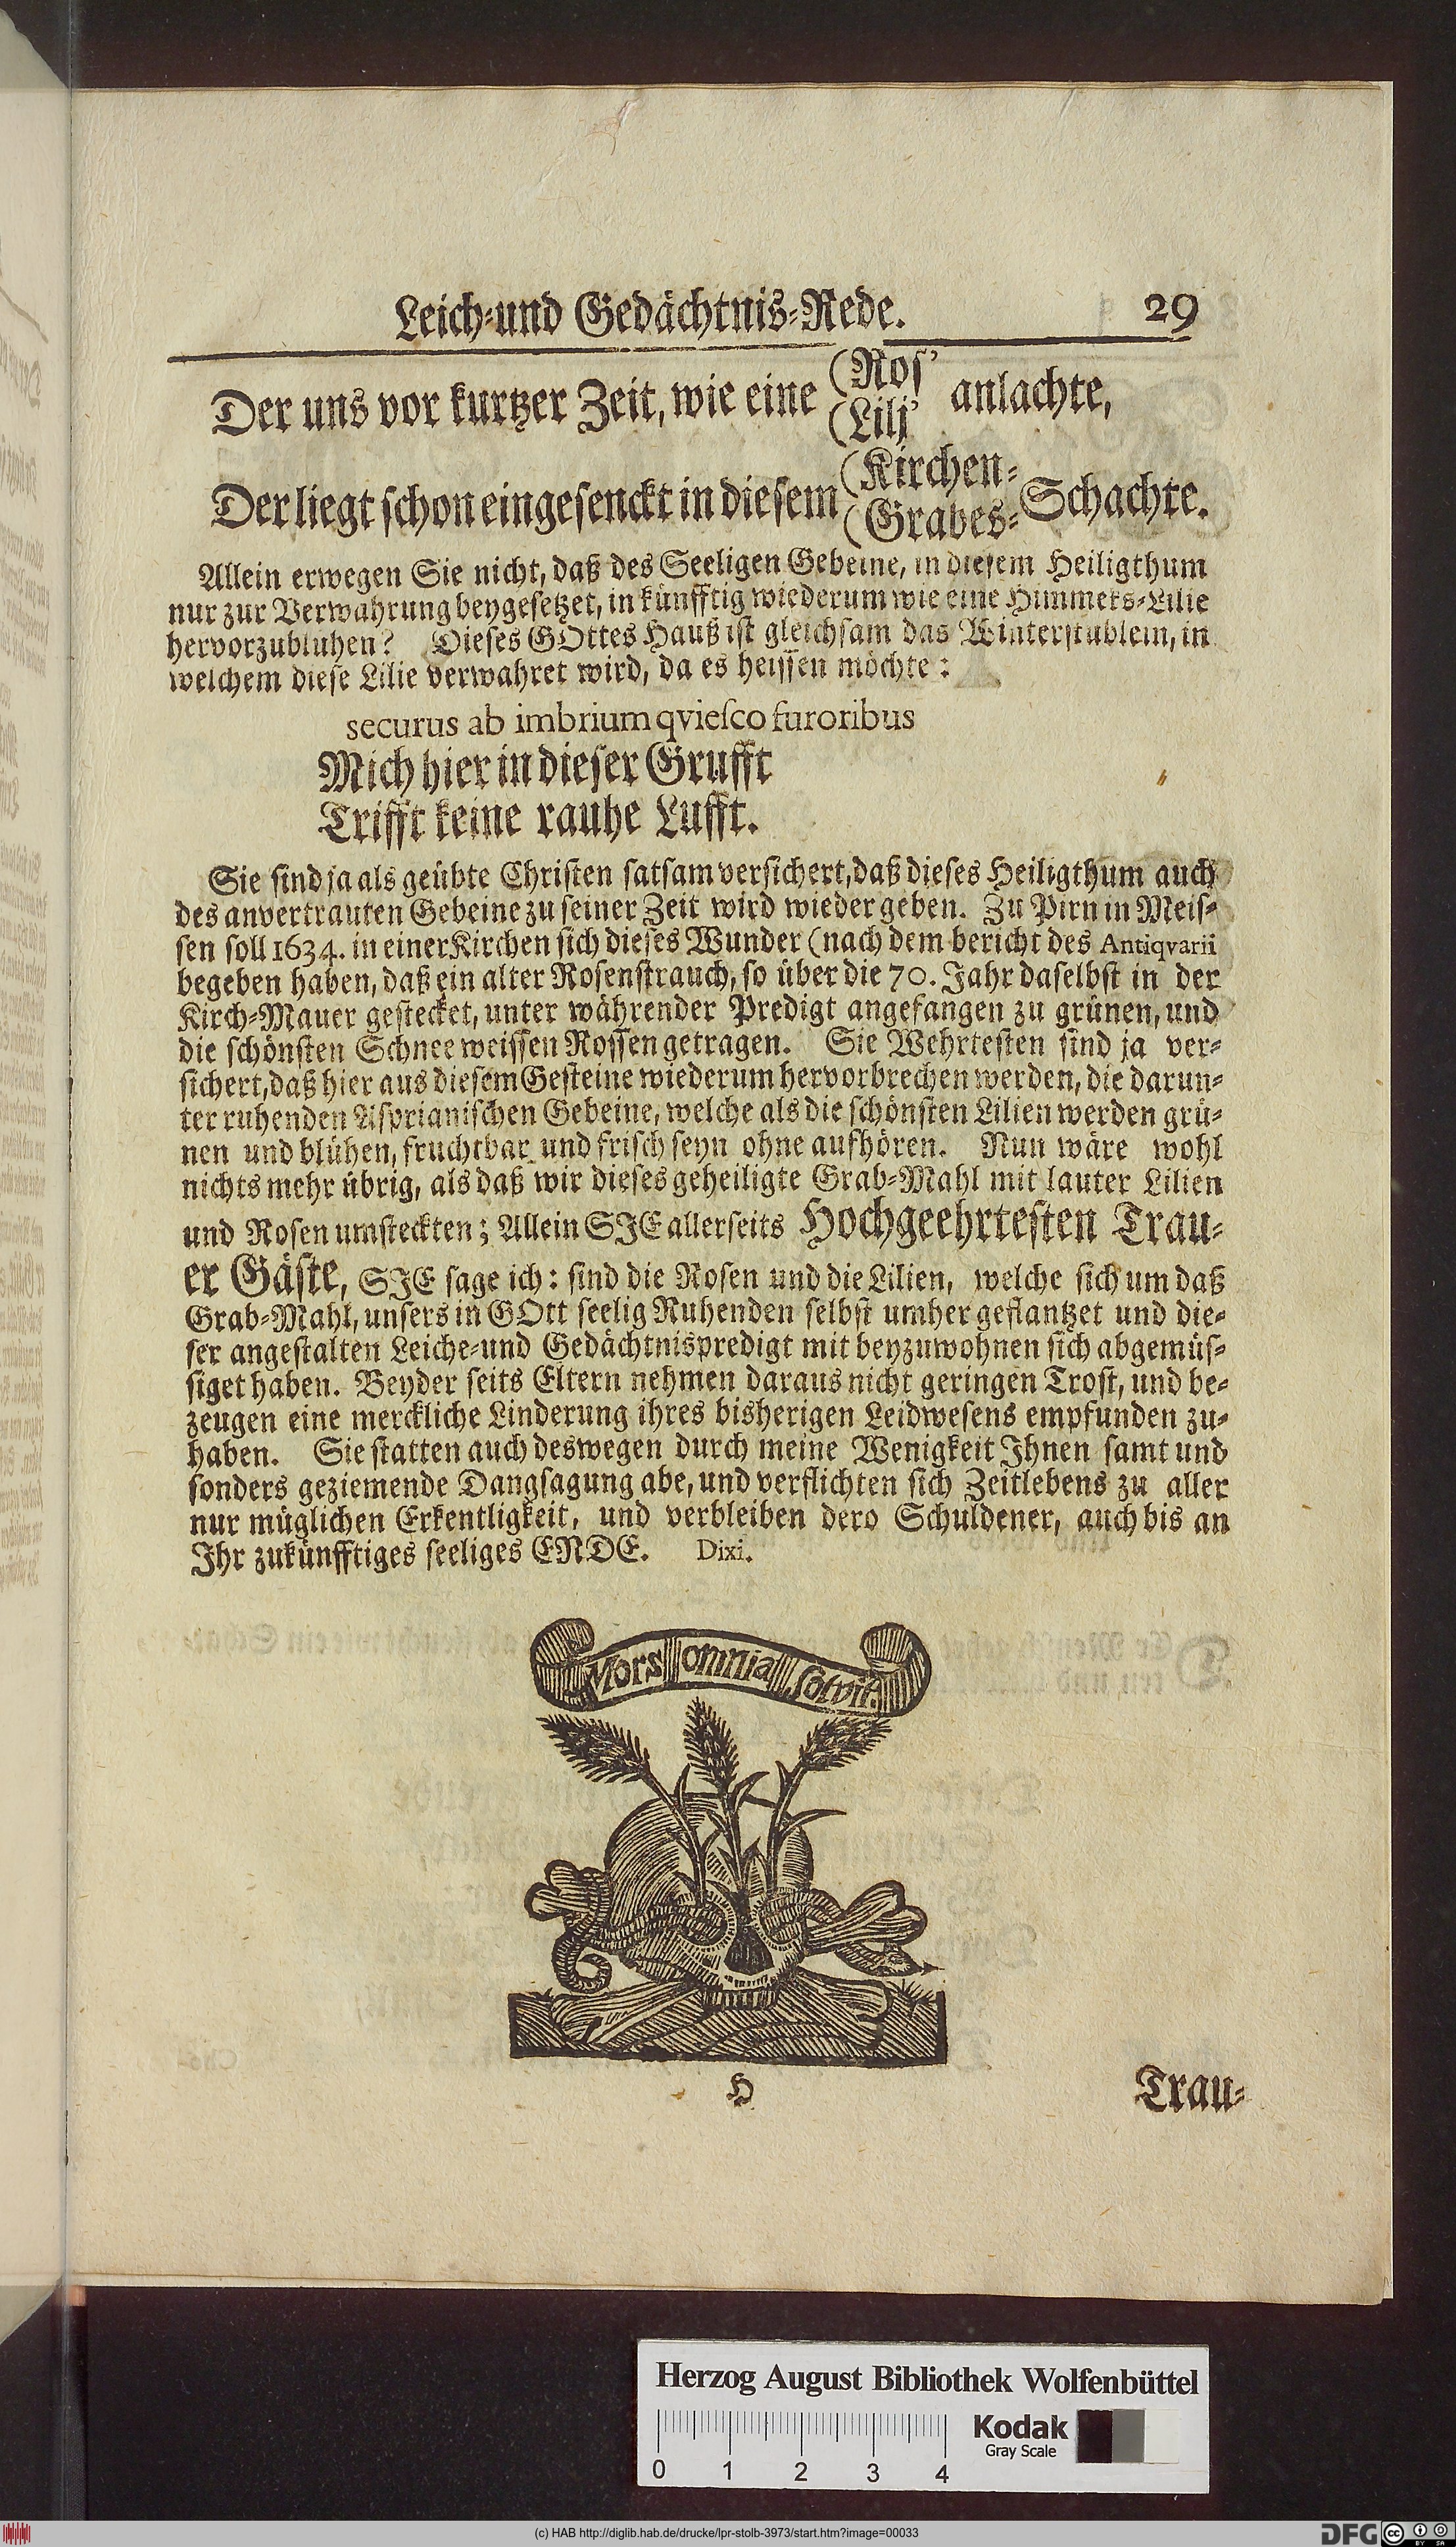 Leich-und Gedächtnis-Rede. 29
Der uns vor kurtzer Zeit, wie eine (Ros' (Lilj' anlachte,
Der liegt schon eingesenckt in diesem (Kirchen- (Grabes- Schachte.
Allein erwegen Sie nicht, daß des Seeligen Gebeine, in diesem Heiligthum
nur zur Verwahrung beygesetzet, in künfftig wiederum wie eine Himmels-Lilie
hervorzubluhen? Dieses GOttes Hauß ist gleichsam das Winterstublein, in
welchem diese Lilie verwahret wird, da es heissen möchte:
securus ab imbrium qviesco furoribus
Mich hier in dieser Grufft
Trifft keine rauhe Lufft.
Sie sind ja als geübte Christen satsam versichert, daß dieses Heiligthum auch
des anvertrauten Gebeine zu seiner Zeit wird wieder geben. Zu Pirn in Meis-
sen soll 1634. in einer Kirchen sich dieses Wunder (nach dem bericht des Antiqvarii
begeben haben, daß ein alter Rosenstrauch, so über die 70. Jahr daselbst in der
Kirch-Mauer gestecket, unter währender Predigt angefangen zu grünen, und
die schönsten Schnee weissen Rossen getragen. Sie Wehrtesten sind ja ver-
sichert, daß hier aus diesem Gesteine wiederum hervorbrechen werden, die darun-
ter ruhenden Asprianischen Gebeine, welche als die schönsten Lilien werden grü-
nen und blühen, fruchtbar und frisch seyn ohne aufhören. Nun wäre wohl
nichts mehr übrig, als daß wir dieses geheiligte Grab-Mahl mit lauter Lilien
und Rosen umsteckten; Allein SIE allerseits Hochgeehrtesten Trau-
er Gäste, SIE sage ich: sind die Rosen und die Lilien, welche sich um daß
Grab-Mahl, unsers in GOtt seelig Ruhenden selbst umher geflantzet und die-
ser angestalten Leiche-und Gedächtnispredigt mit beyzuwohnen sich abgemüs-
siget haben. Beyder seits Eltern nehmen daraus nicht geringen Trost, und be-
zeugen eine merckliche Linderung ihres bisherigen Leidwesens empfunden zu-
haben. Sie statten auch deswegen durch meine Wenigkeit Ihnen samt und
sonders geziemende Dangsagung abe, und verflichten sich Zeitlebens zu aller
nur müglichen Erkentligkeit, und verbleiben dero Schuldener, auch bis an
Ihr zukünfftiges seeliges ENDE. Dixi.
Mors omnia solvit.
H
Trau-
Herzog August Bibliothek Wolfenbüttel
Kodak
Gray Scale
0 1 2 3 4
(c) HAB http://diglib.hab.de/drucke/lpr-stolb-3973/start.htm?image=00033
DFG